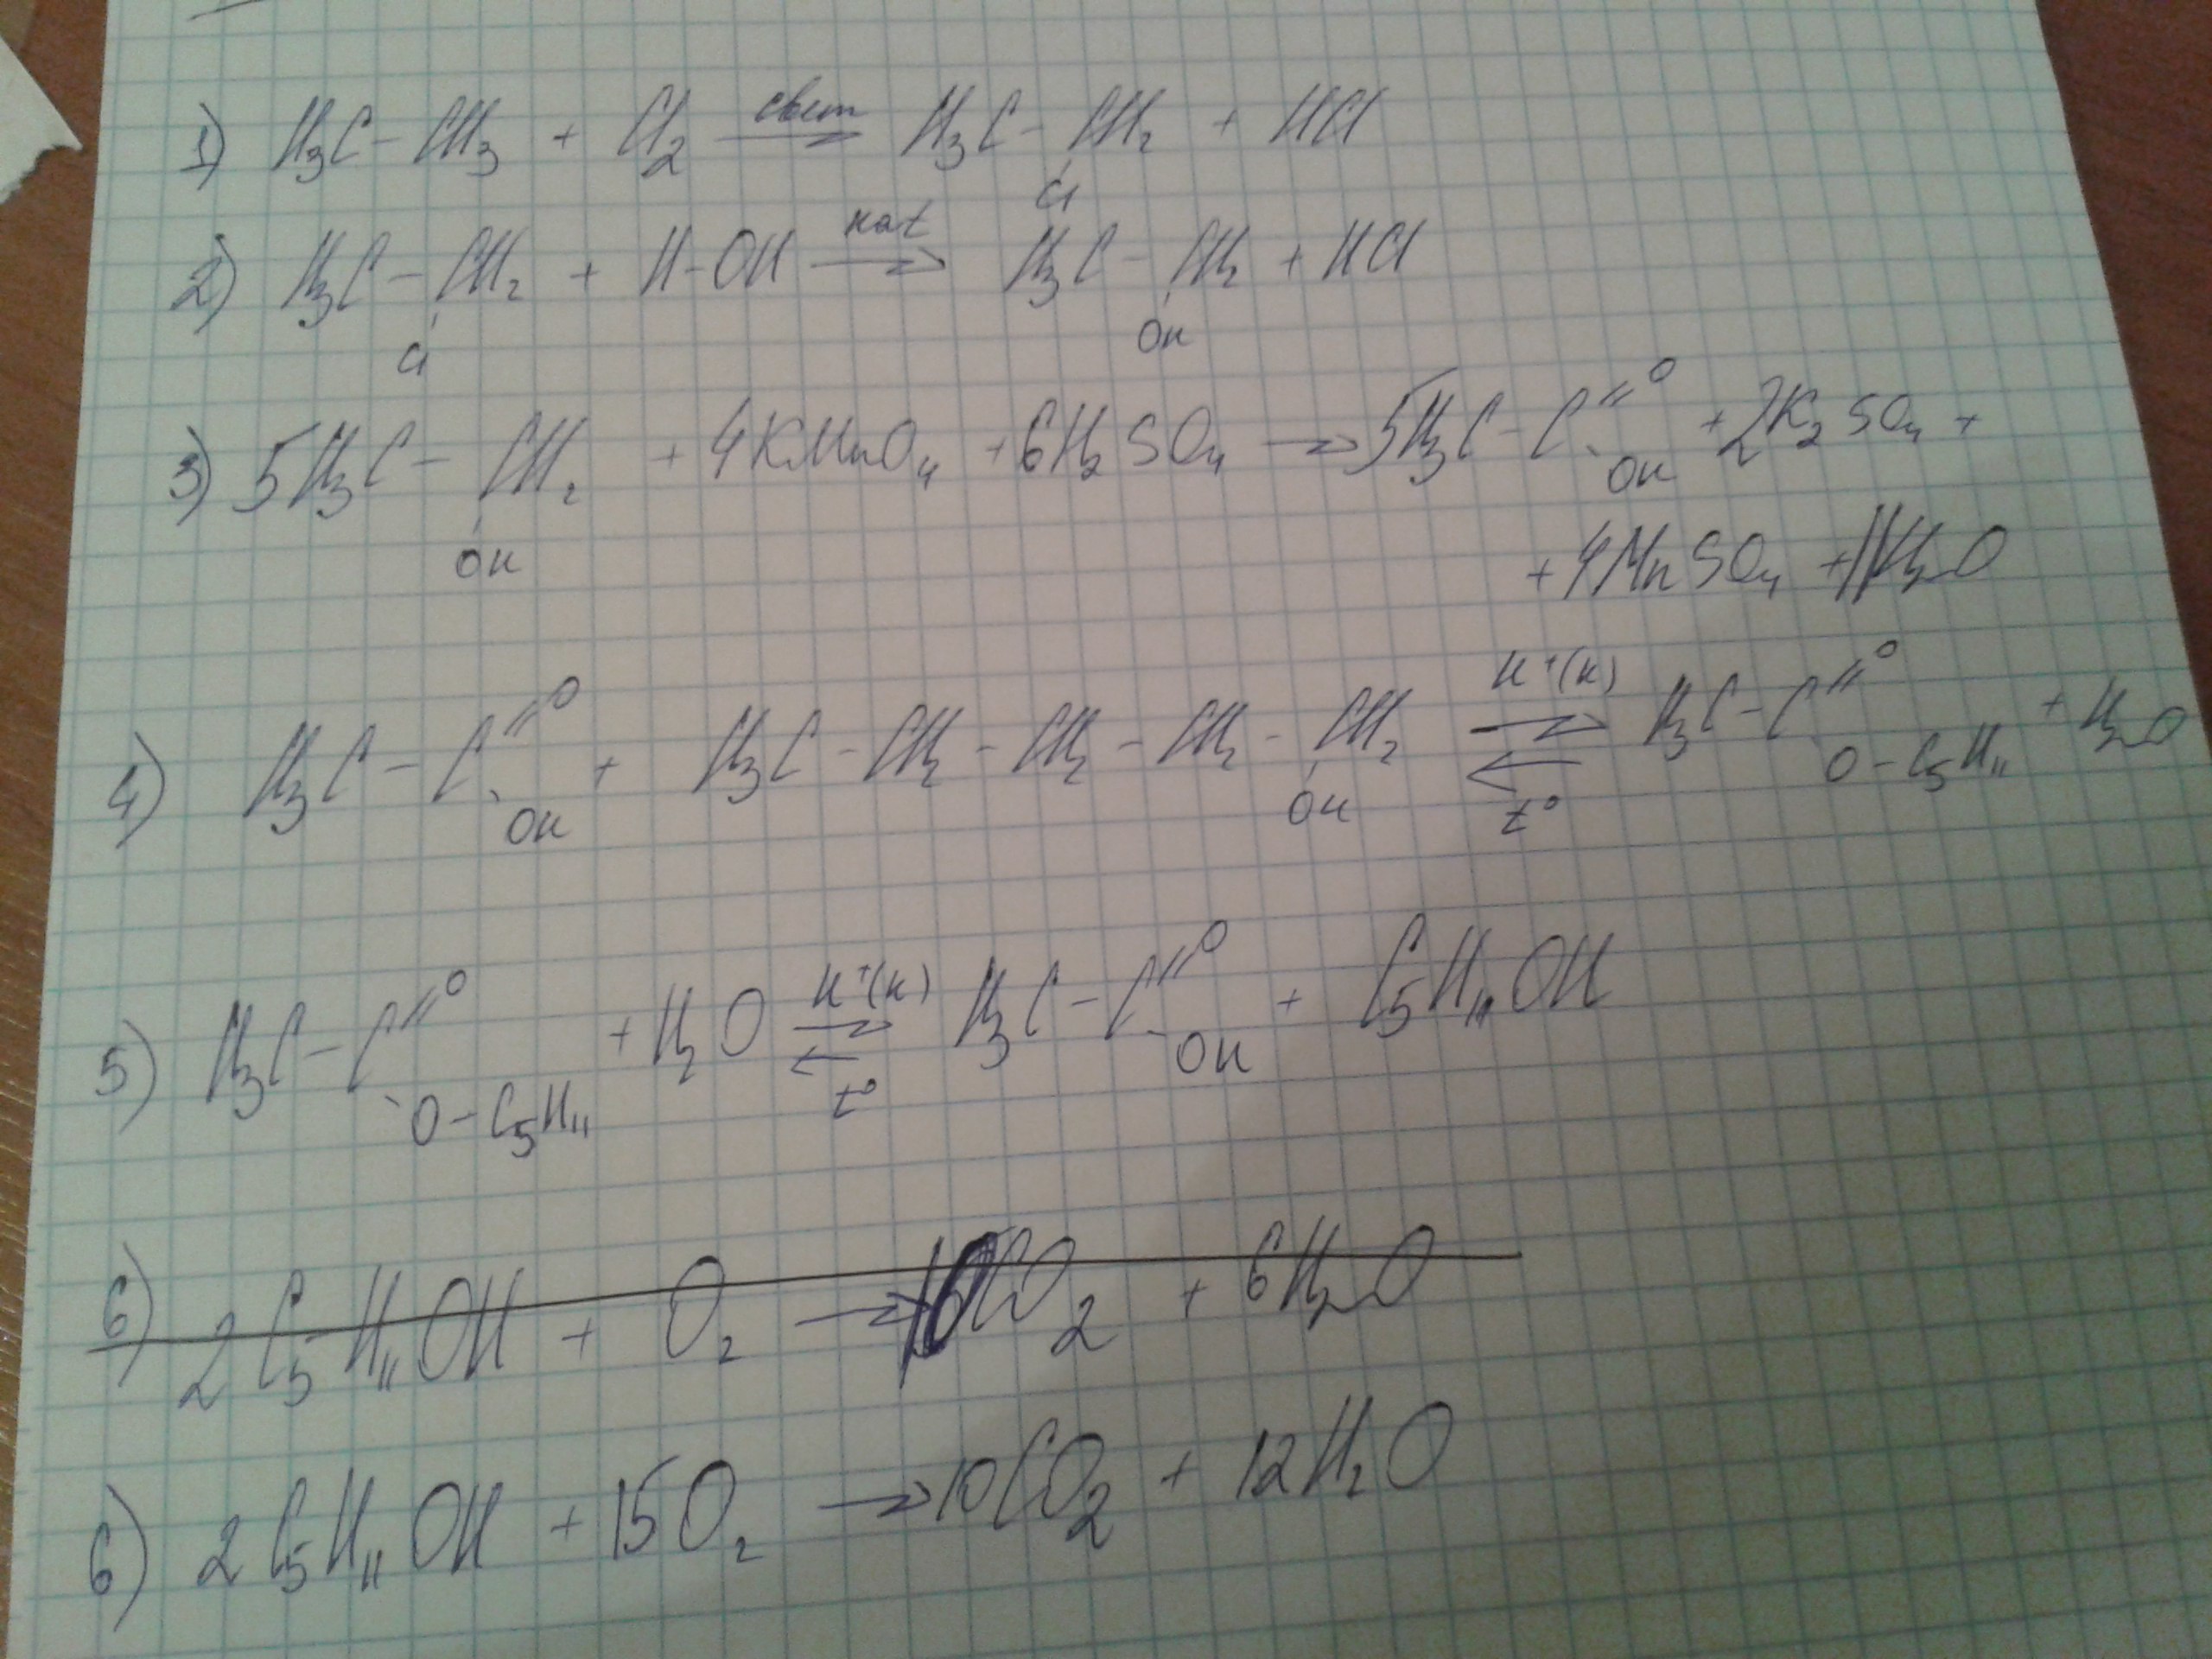 1) H₃C – CH₃ + Cl₂ свет→ H₃C – CH₂ + HCl
Cl
2) H₃C – CH₂ + H–OH кat→ H₃C – CH₂ + HCl
Cl OH
3) 5H₃C – CH₂ + 4KMnO₄ + 6H₂SO₄ → 5H₃C – C = O + 2K₂SO₄ +
OH OH
+ 4MnSO₄ + 11H₂O
4) H₃C – C = O + H₃C – CH₂ – CH₂ – CH₂ – CH₂ H⁺(к) ⇄ t° H₃C – C = O + H₂O
OH OH O – C₅H₁₁
5) H₃C – C = O + H₂O H⁺(к) ⇄ t° H₃C – C = O + C₅H₁₁OH
O – C₅H₁₁ OH
6) 2C₅H₁₁OH + O₂ → 10CO₂ + 6H₂O
6) 2C₅H₁₁OH + 15O₂ → 10CO₂ + 12H₂O